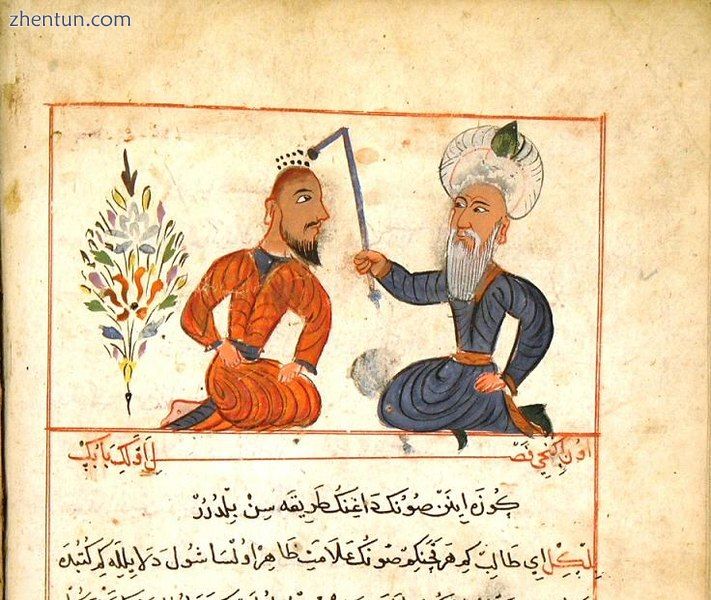 zhentun.com
اون ايكنجي فصل اولكي بابك
كوزه اينن صونك داغنك طريقه سن بلدرر
بلكل اي طالب كم هر قچنكم صونك علامت ظاهر اولسا شول دلايلله كم كتبده